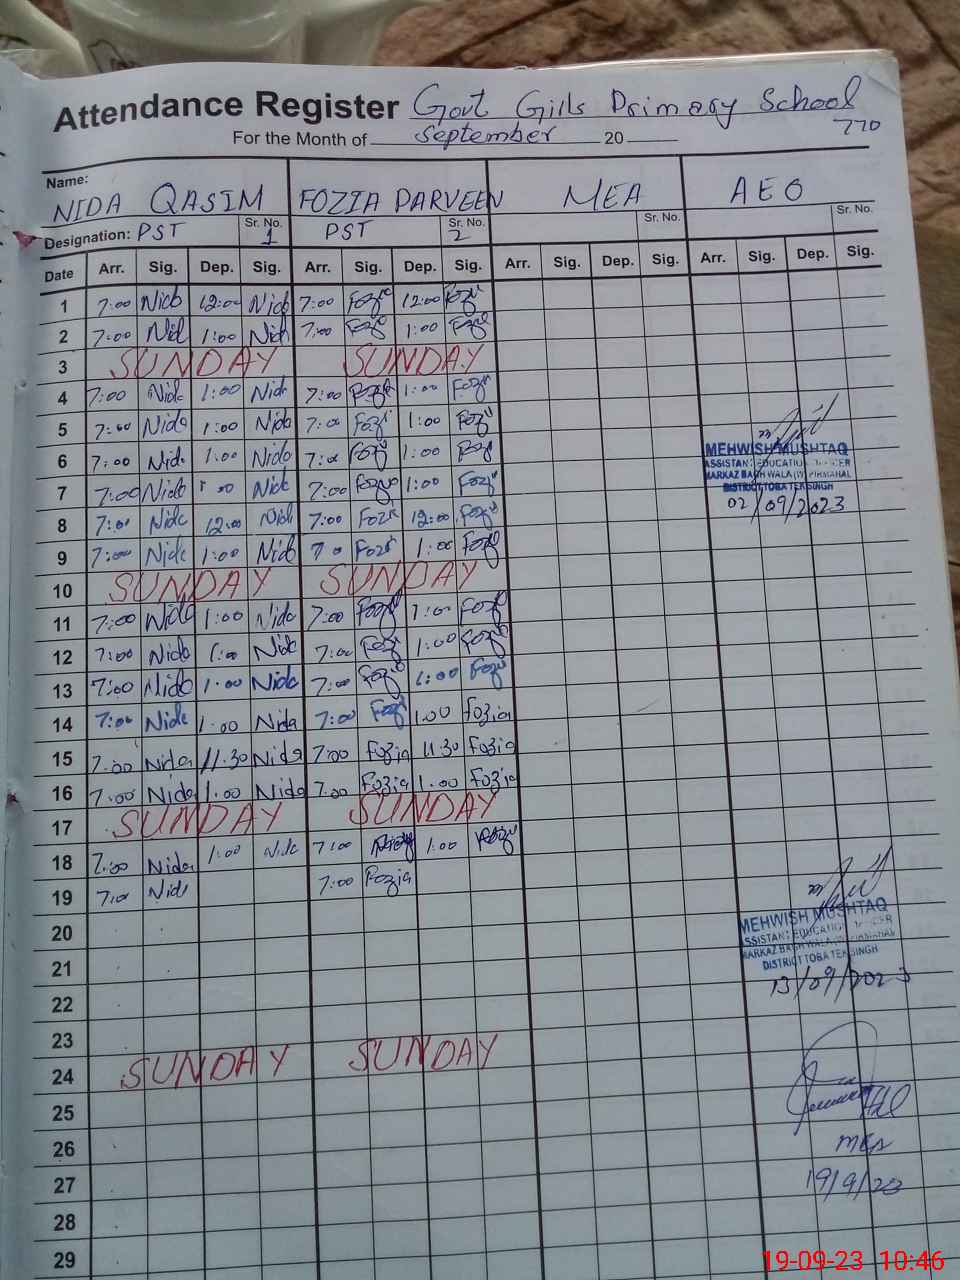 Attendance Register Govt Girls Primary School
770
For the Month of September 20
Name: NIDA QASIM FOZIA PARVEEN MEA AEO
Designation: PST Sr. No. 1 PST Sr. No. 2 Sr. No. Sr. No.
Date Arr. Sig. Dep. Sig. Arr. Sig. Dep. Sig. Arr. Sig. Dep. Sig. Arr. Sig. Dep. Sig.
1 7:00 12:00 7:00 12:00
2 7:00 1:00 7:00 1:00
3 SUNDAY SUNDAY
4 7:00 1:00 7:00 1:00
5 7:00 Nida 1:00 Nida 7:00 1:00
6 7:00 Nida 1:00 Nida 7:00 1:00
7 7:00 7:00 1:00
8 7:00 12:00 7:00 12:00
9 7:00 1:00 1:00
10 SUNDAY SUNDAY
11 7:00 Nida 1:00 Nida 7:00 1:00
12 7:00 Nida 1:00 7:00 1:00
13 7:00 Nida 1:00 Nida 7:00 1:00
14 7:00 Nida 1:00 Nida 7:00 1:00 Fozia
15 7:00 Nida 11:30 Nida 7:00 Fozia 11:30 Fozia
16 7:00 Nida 1:00 Nida 7:00 Fozia 1:00 Fozia
17 SUNDAY SUNDAY
18 7:00 Nida 1:00 Nida 7:00 1:00
19 7:00 Nida 7:00 Fozia
20
21
22
23
24 SUNDAY SUNDAY
25
26
27
28
29
MEHWISH MUSHTAQ
ASSISTANT EDUCATION OFFICER
MARKAZ BAGHWALA (W) PIRMAHAL
DISTRICT TOBA TEK SINGH
02/09/2023
MEHWISH MUSHTAQ
ASSISTANT EDUCATION OFFICER
MARKAZ BAGHWALA (W) PIRMAHAL
DISTRICT TOBA TEK SINGH
13/09/2023
MEA
19/9/23
19-09-23 10:46